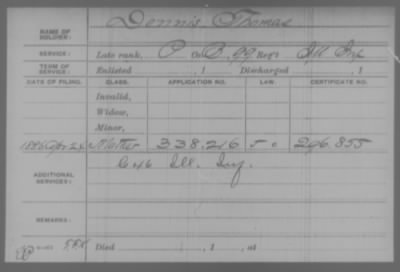 NAME OF SOLDIER: Dennis, Thomas
SERVICE: Late rank, P Co B, 99 Reg't Ill Inf
TERM OF SERVICE: Enlisted , 1 Discharged , 1
DATE OF FILING. CLASS. APPLICATION NO. LAW. CERTIFICATE NO.
Invalid,
Widow,
Minor,
1886 Apr 24 Mother 338.216 296.855
ADDITIONAL SERVICES: C 46 Ill. Inf.
REMARKS:
Died , 1 , at